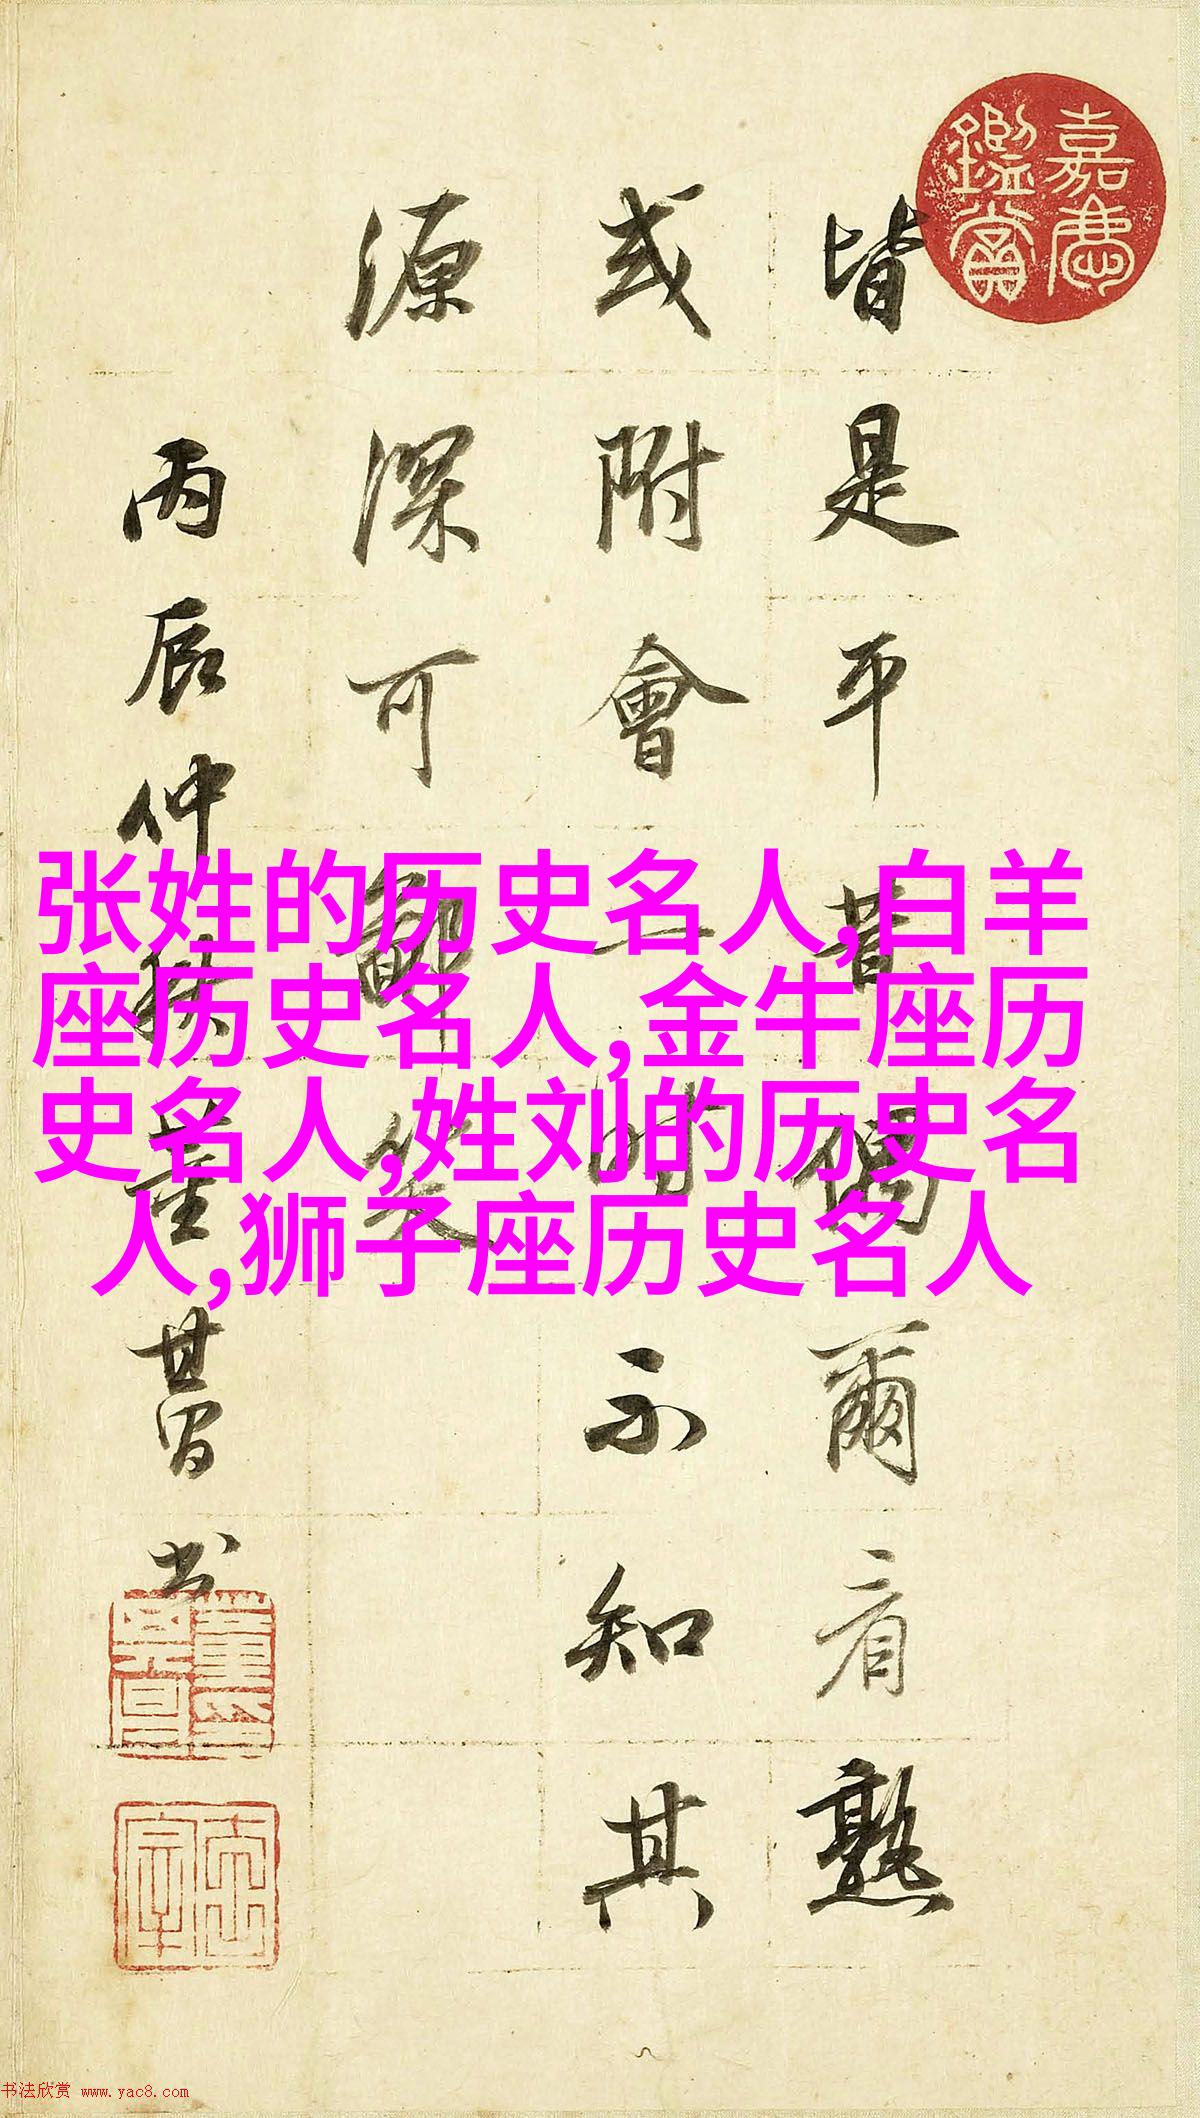 嘉慶
鑑賞
皆是平昔偶爾看熟
或附會一時不知其
源深可鄙笑
丙辰仲秋董其昌书
张姓的历史名人,白羊
座历史名人,金牛座历
史名人,姓刘的历史名
人,狮子座历史名人
书法欣赏 www.yac8.com